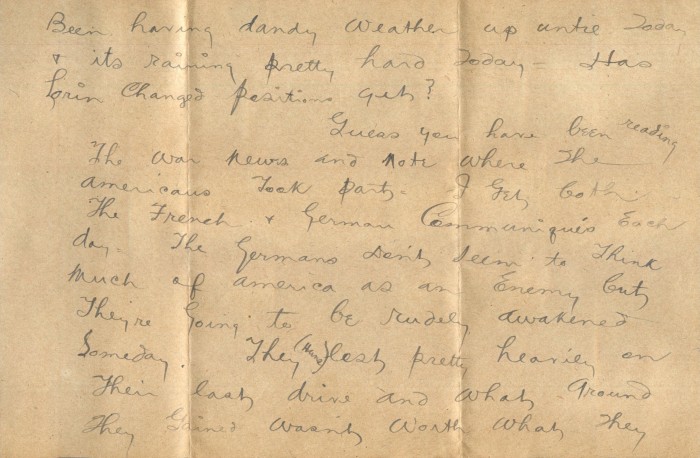 Been having dandy weather up untie Today
& its raining pretty hard Today - Has
Lorin Changed positions yet?
Guess you have been reading
The war News and Note where The
americans Took part - I Get both
The French & German Communiqués Each
day - The Germans Don't Seem to Think
Much of america as an Enemy but
They're Going to be rudely awakened
Someday. They (Huns) lost pretty heavily on
Their last drive and what Ground
They Gained wasn't worth what They